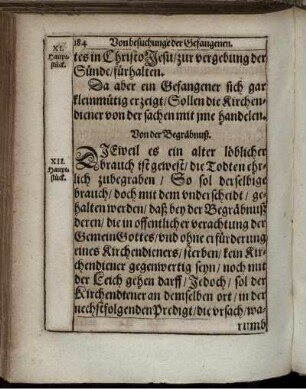 184 Von besuchunge der Gefangenen.
XI.
Haupt-
stück.
tes in Christo Jesu/ zur vergebung der
Sünde/ fürhalten.
Da aber ein Gefangener sich gar
kleinmütig erzeigt/ Sollen die Kirchen-
diener von der sachen mit jme handelen.
Von der Begräbnuß.
XII.
Haupt-
stück.
DIEweil es ein alter löblicher
brauch ist gewest/ die Todten ehr-
lich zubegraben/ So sol derselbige
brauch/ doch mit dem vnderscheidt/ ge-
halten werden/ daß bey der Begräbnuß
deren/ die in offentlicher verachtung der
Gemein Gottes/ vnd ohne erfürderung
eines Kirchendieners/ sterben/ kein Kir-
chendiener gegenwertig seyn/ noch mit
der Leich gehen darff/ Jedoch/ sol der
Kirchendiener an demselben ort/ in der
nechstfolgenden Predigt/ die vrsach/ wa-
rumb